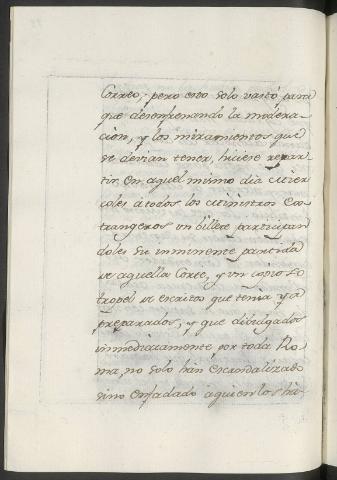 Correo; pero esto solo vastó para
que desenfrenando la modera-
cion, y los miramientos que
se devian tener, hiciese repar-
tir en aquel mismo dia Mier-
coles à todos los Ministros Es-
trangeros un billete participan-
doles su imminente partida
de aquella Corte, y un copioso
tropel de escritos que tenia ya
preparados, y que divulgados
immediatamente por toda Ro-
ma, no solo han escandalizado
sino enfadado à quien los há-